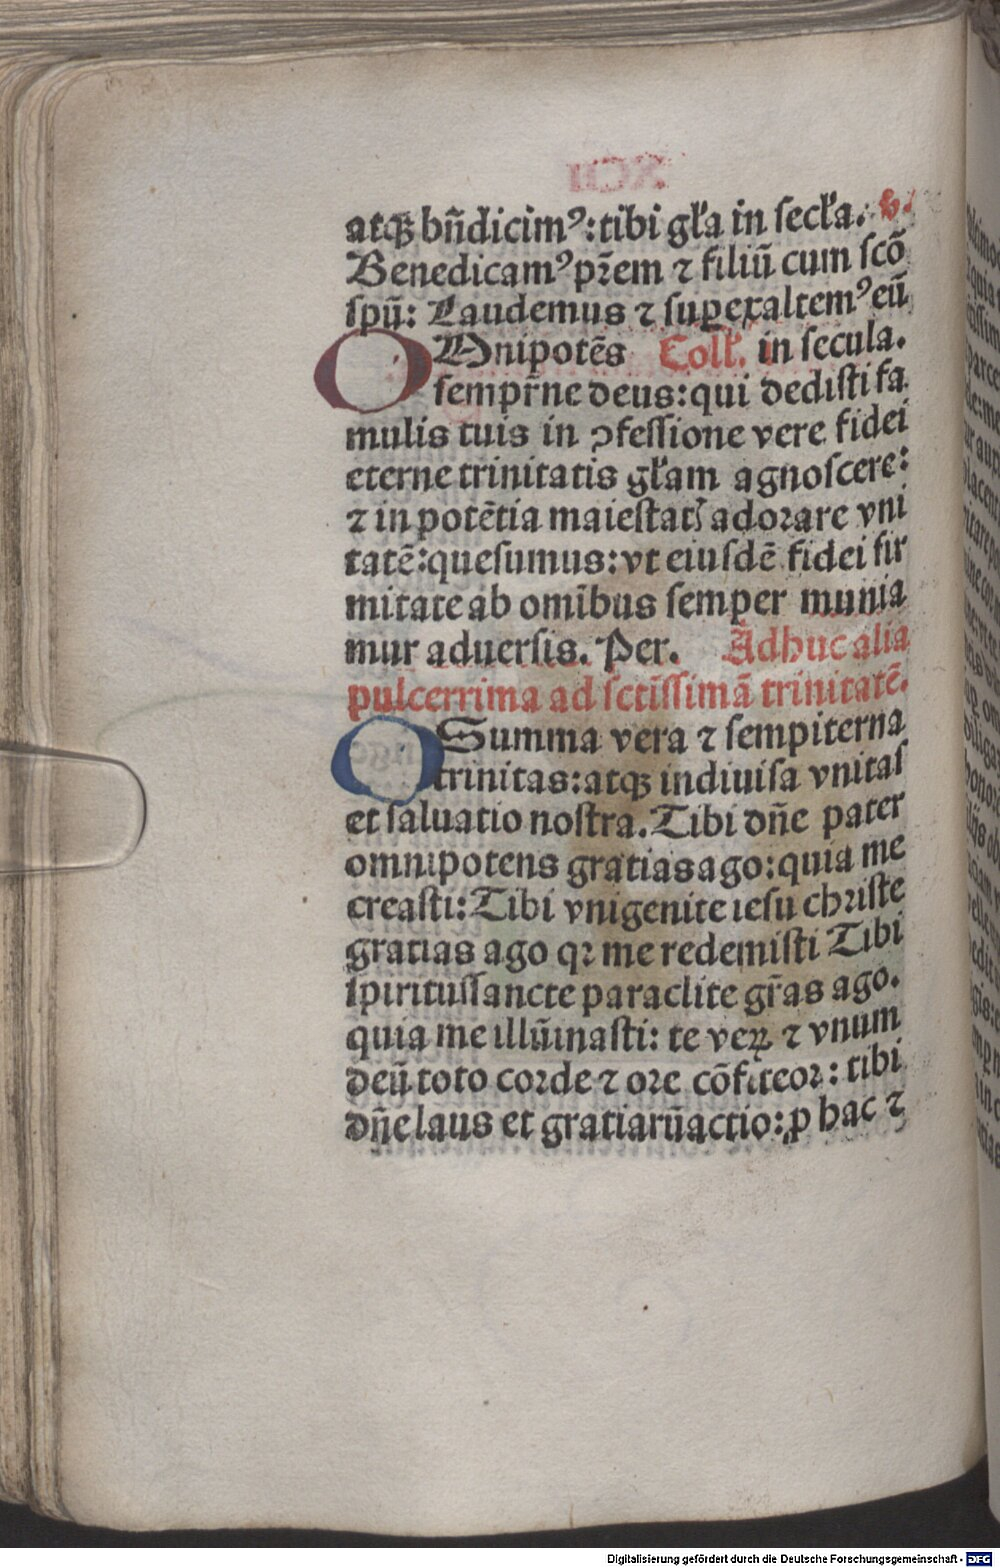 atqꝫ bñdicimꝰ: tibi gła in secła. ℣.
Benedicamꝰ pr̃em ⁊ filiũ cum scõ
spũ: Laudemus ⁊ suꝑexaltemꝰ eũ
OMnipotẽs Coll̃. in secula.
sempr̃ne deus: qui dedisti fa
mulis tuis in ꝯfessione vere fidei
eterne trinitatis głam agnoscere:
⁊ in potẽtia maiestatꝭ adorare vni
tatẽ: quesumus: vt eiusdẽ fidei fir
mitate ab omĩbus semper munia
mur aduersis. Per. Adhuc alia
pulcerrima ad sctĩssimã trinitatẽ.
O Summa vera ⁊ sempiterna
trinitas: atqꝫ indiuisa vnitas
et saluatio nostra. Tibi dñe pater
omnipotens gratias ago: quia me
creasti: Tibi vnigenite iesu christe
gratias ago qꝛ me redemisti Tibi
spiritussancte paraclite gr̃as ago.
quia me illũinasti: te veꝝ ⁊ vnum
deũ toto corde ⁊ ore cõfiteor: tibi
dñe laus et gratiarũ actio: ꝑ hac ⁊
Digitalisierung gefördert durch die Deutsche Forschungsgemeinschaft - DFG